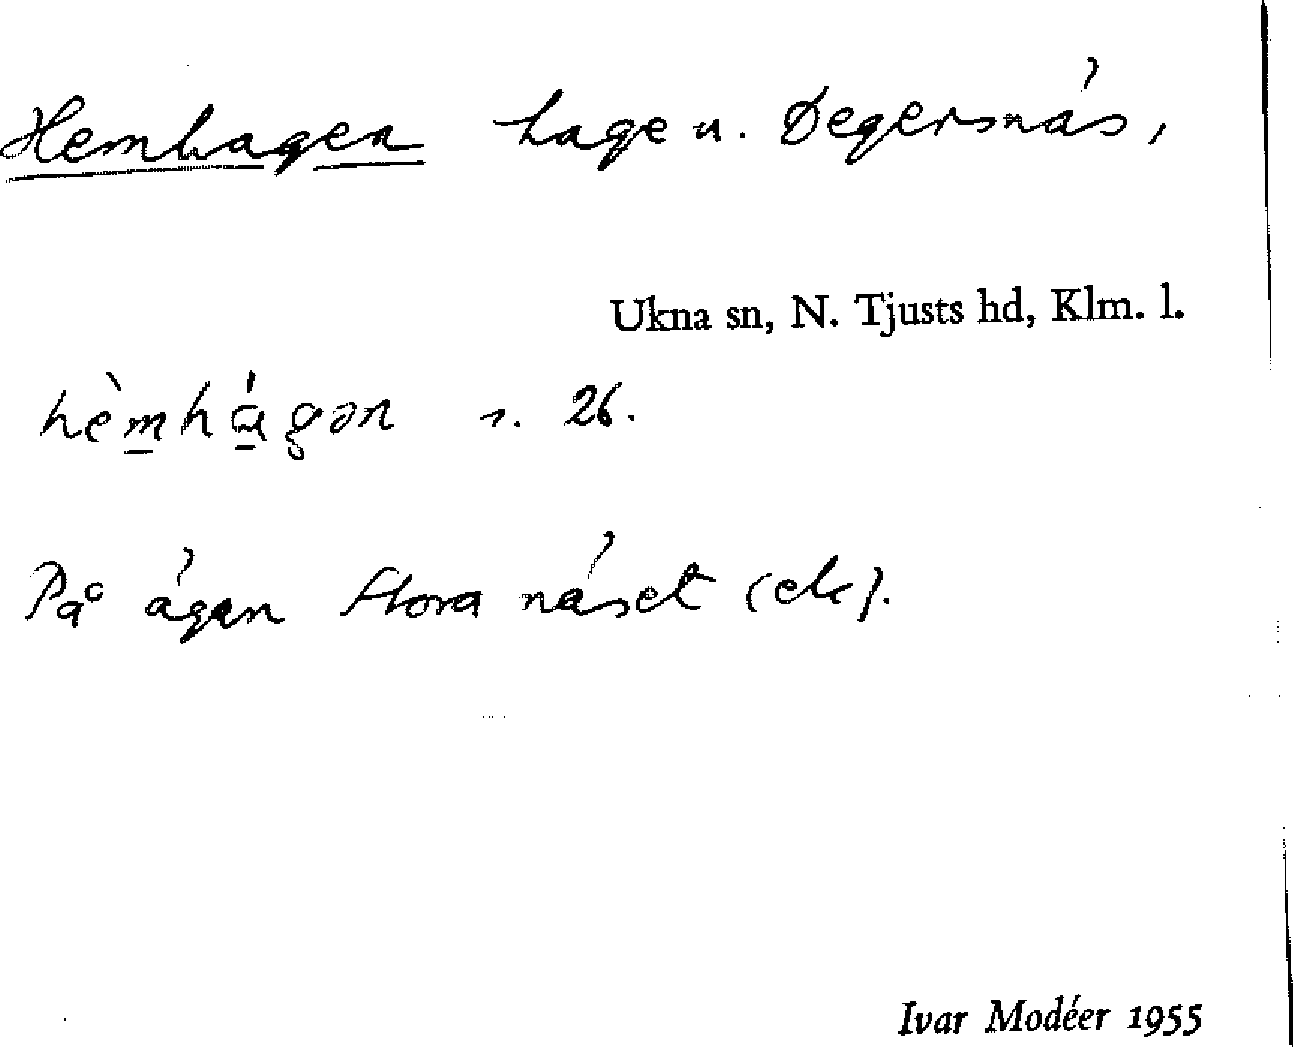 Hemhagen hage u. Degersnäs,
Ukna sn, N. Tjusts hd, Klm. l.
hèmhágən s. 26.
På ägan Stora näset (ek).
Ivar Modéer 1955